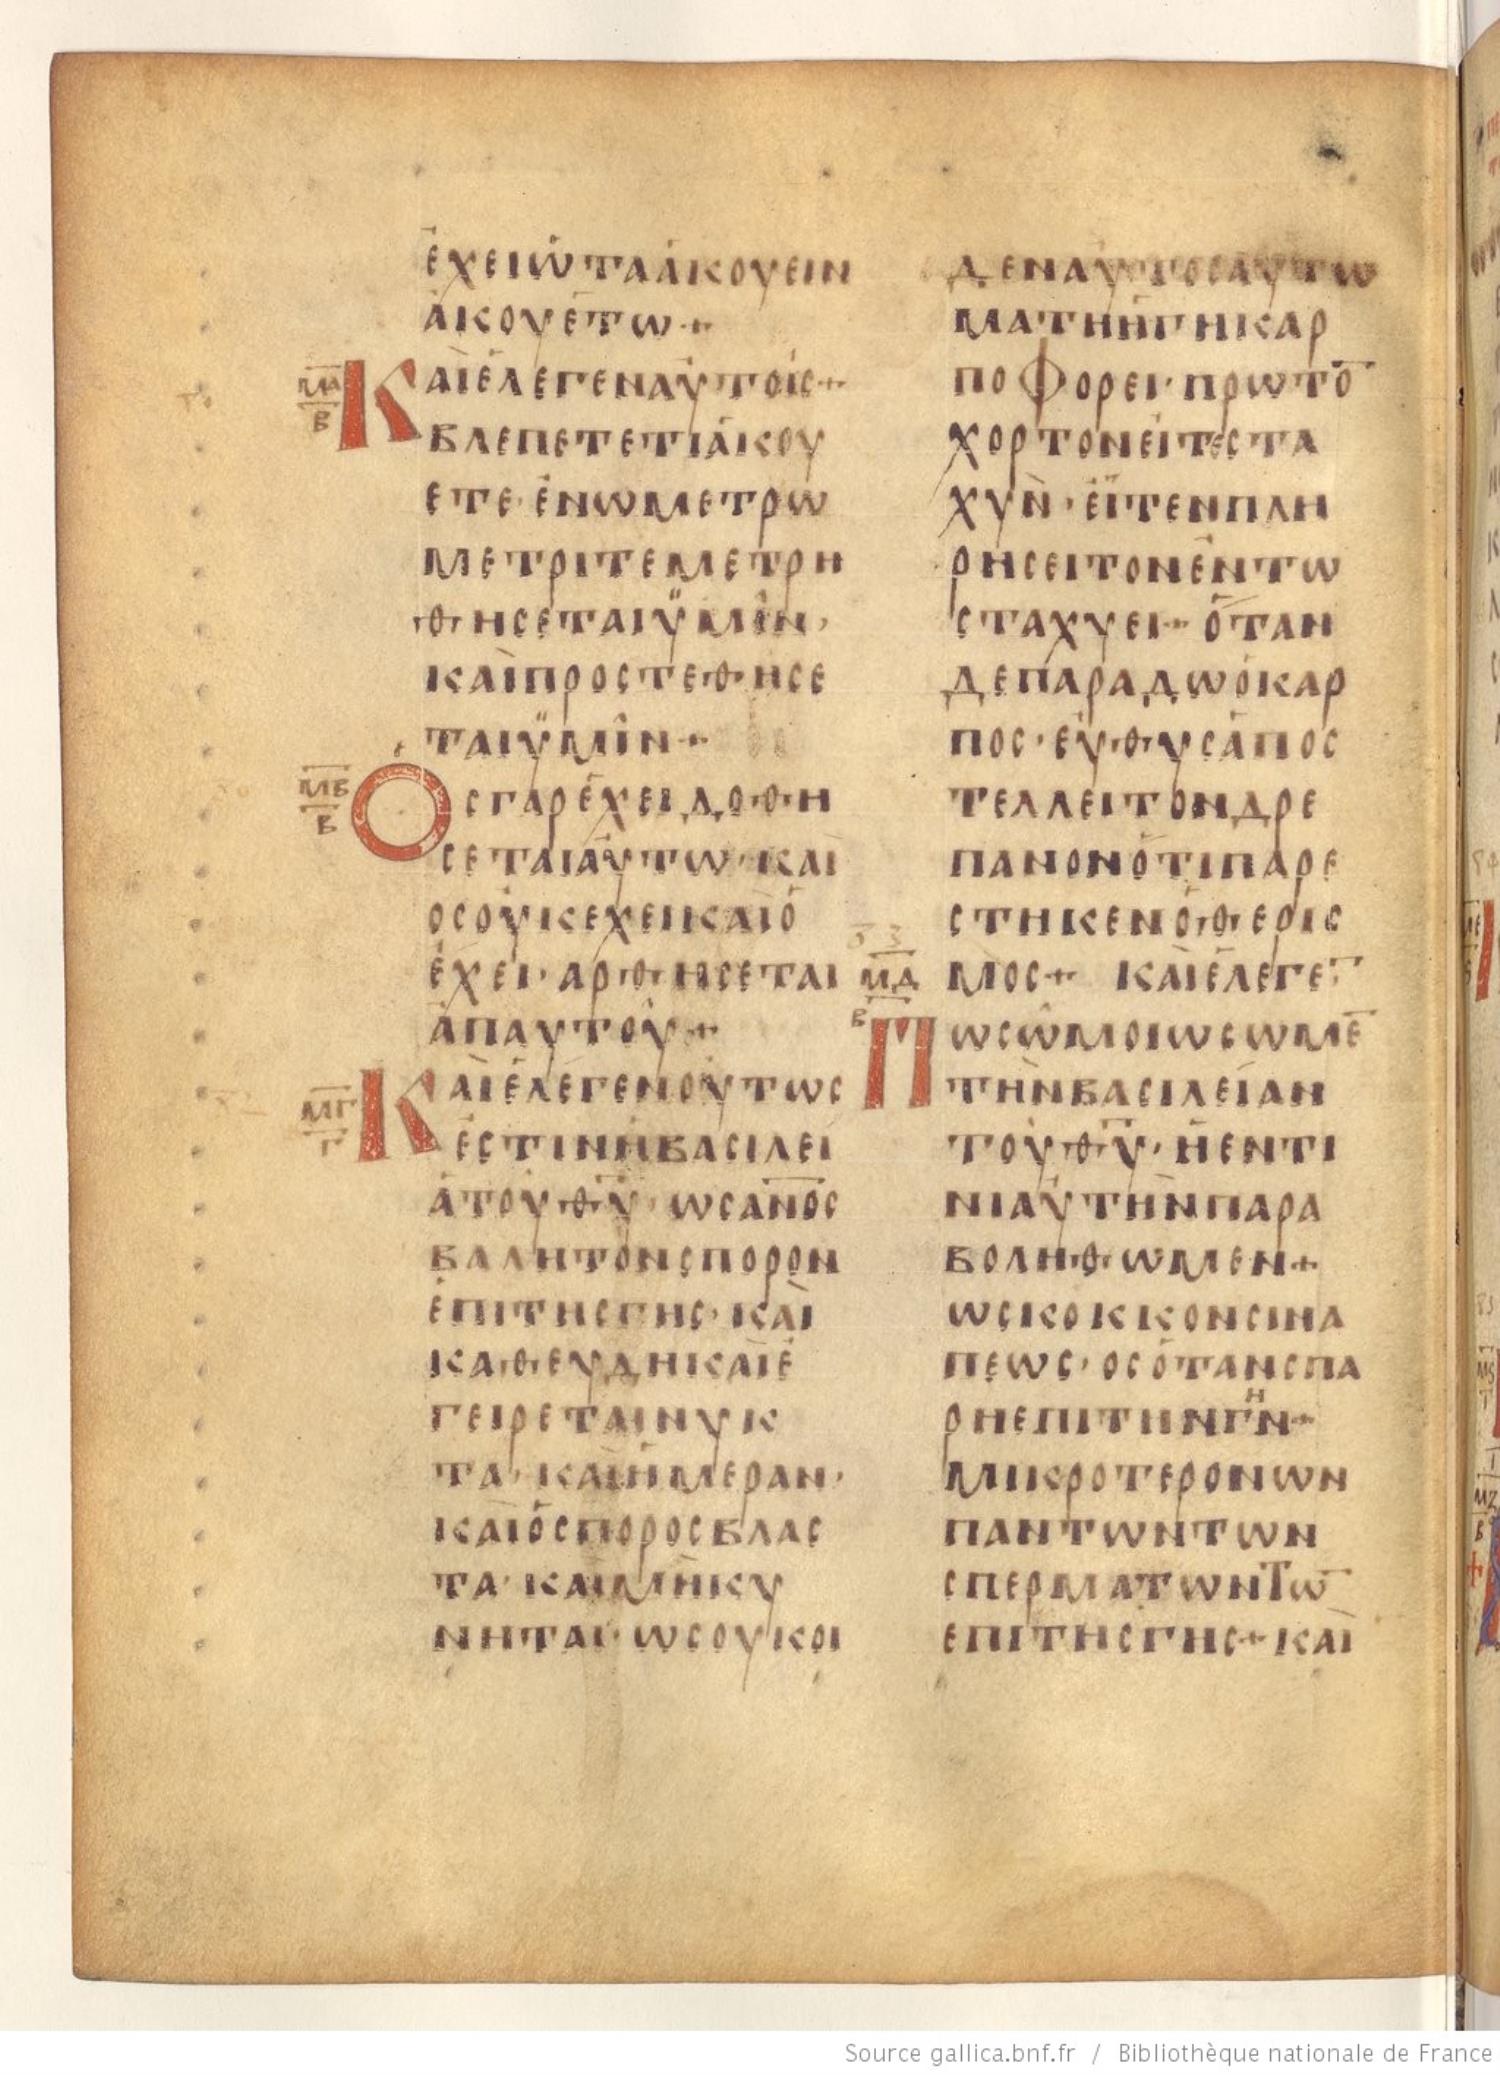 ἔχειὦταἀκούειν
ἀκουέτω·+
ΜΑ
Β
Καὶἔλεγεναὐτοῖς·+
βλέπετετὶἀκού
ετε·ἐνῶμέτρω
μετρῖτεμετρη
θήσεταιϋμῖν·
καὶπροστεθήσε
ταιϋμῖν·+
ΜΒ
Β
Ὅσγαρἔχειδοθή
σεταιαὐτῶ·καὶ
οσοὐκεχεικαὶὅ
ἔχει·αρθήσεται
ἀπαυτοῦ·+
ΜΓ
Γ
Καὶἔλεγενοὕτως
ἐστινἡβασιλεί
ἀτοῦθῦ·ωσανος
βαλητονσπορον
ἐπιτησγης·καὶ
καθευδηκαὶἐ
γειρεταινυκ
τα·καὶἡμεραν·
καὶὅσποροσβλας
τα·καὶμὴκυ
νηται·ωσουκοι
δεναὐτοσαὐτω
ματηἡγηκαρ
ποφορει·πρωτο̅
χορτονεἶτεστα
χυν·εἶτενπλη
ρησειτονἐντω
σταχυει·+ὅταν
δεπαραδωὁκαρ
πος·εὐθυσἀπος
τελλειτονδρε
πανονὅτιπαρε
στηκενὁθερις
ΜΔ
Β
μὸς·+ καὶἐλεγε̅
Πωσὡμοιωσωμε̅
τὴνβασιλείαν
τοῦθῦ·ἠεντι
νιαὐτηνπαρα
βοληθωμεν·+
ωσκοκκονσινα
πεως·οσὅτανσπα
ρηεπιτηνγῆν·+
μικροτερονων
παντωντων
σπερματωντω̅
επιτησγης·+καὶ
Source gallica.bnf.fr / Bibliothèque nationale de France